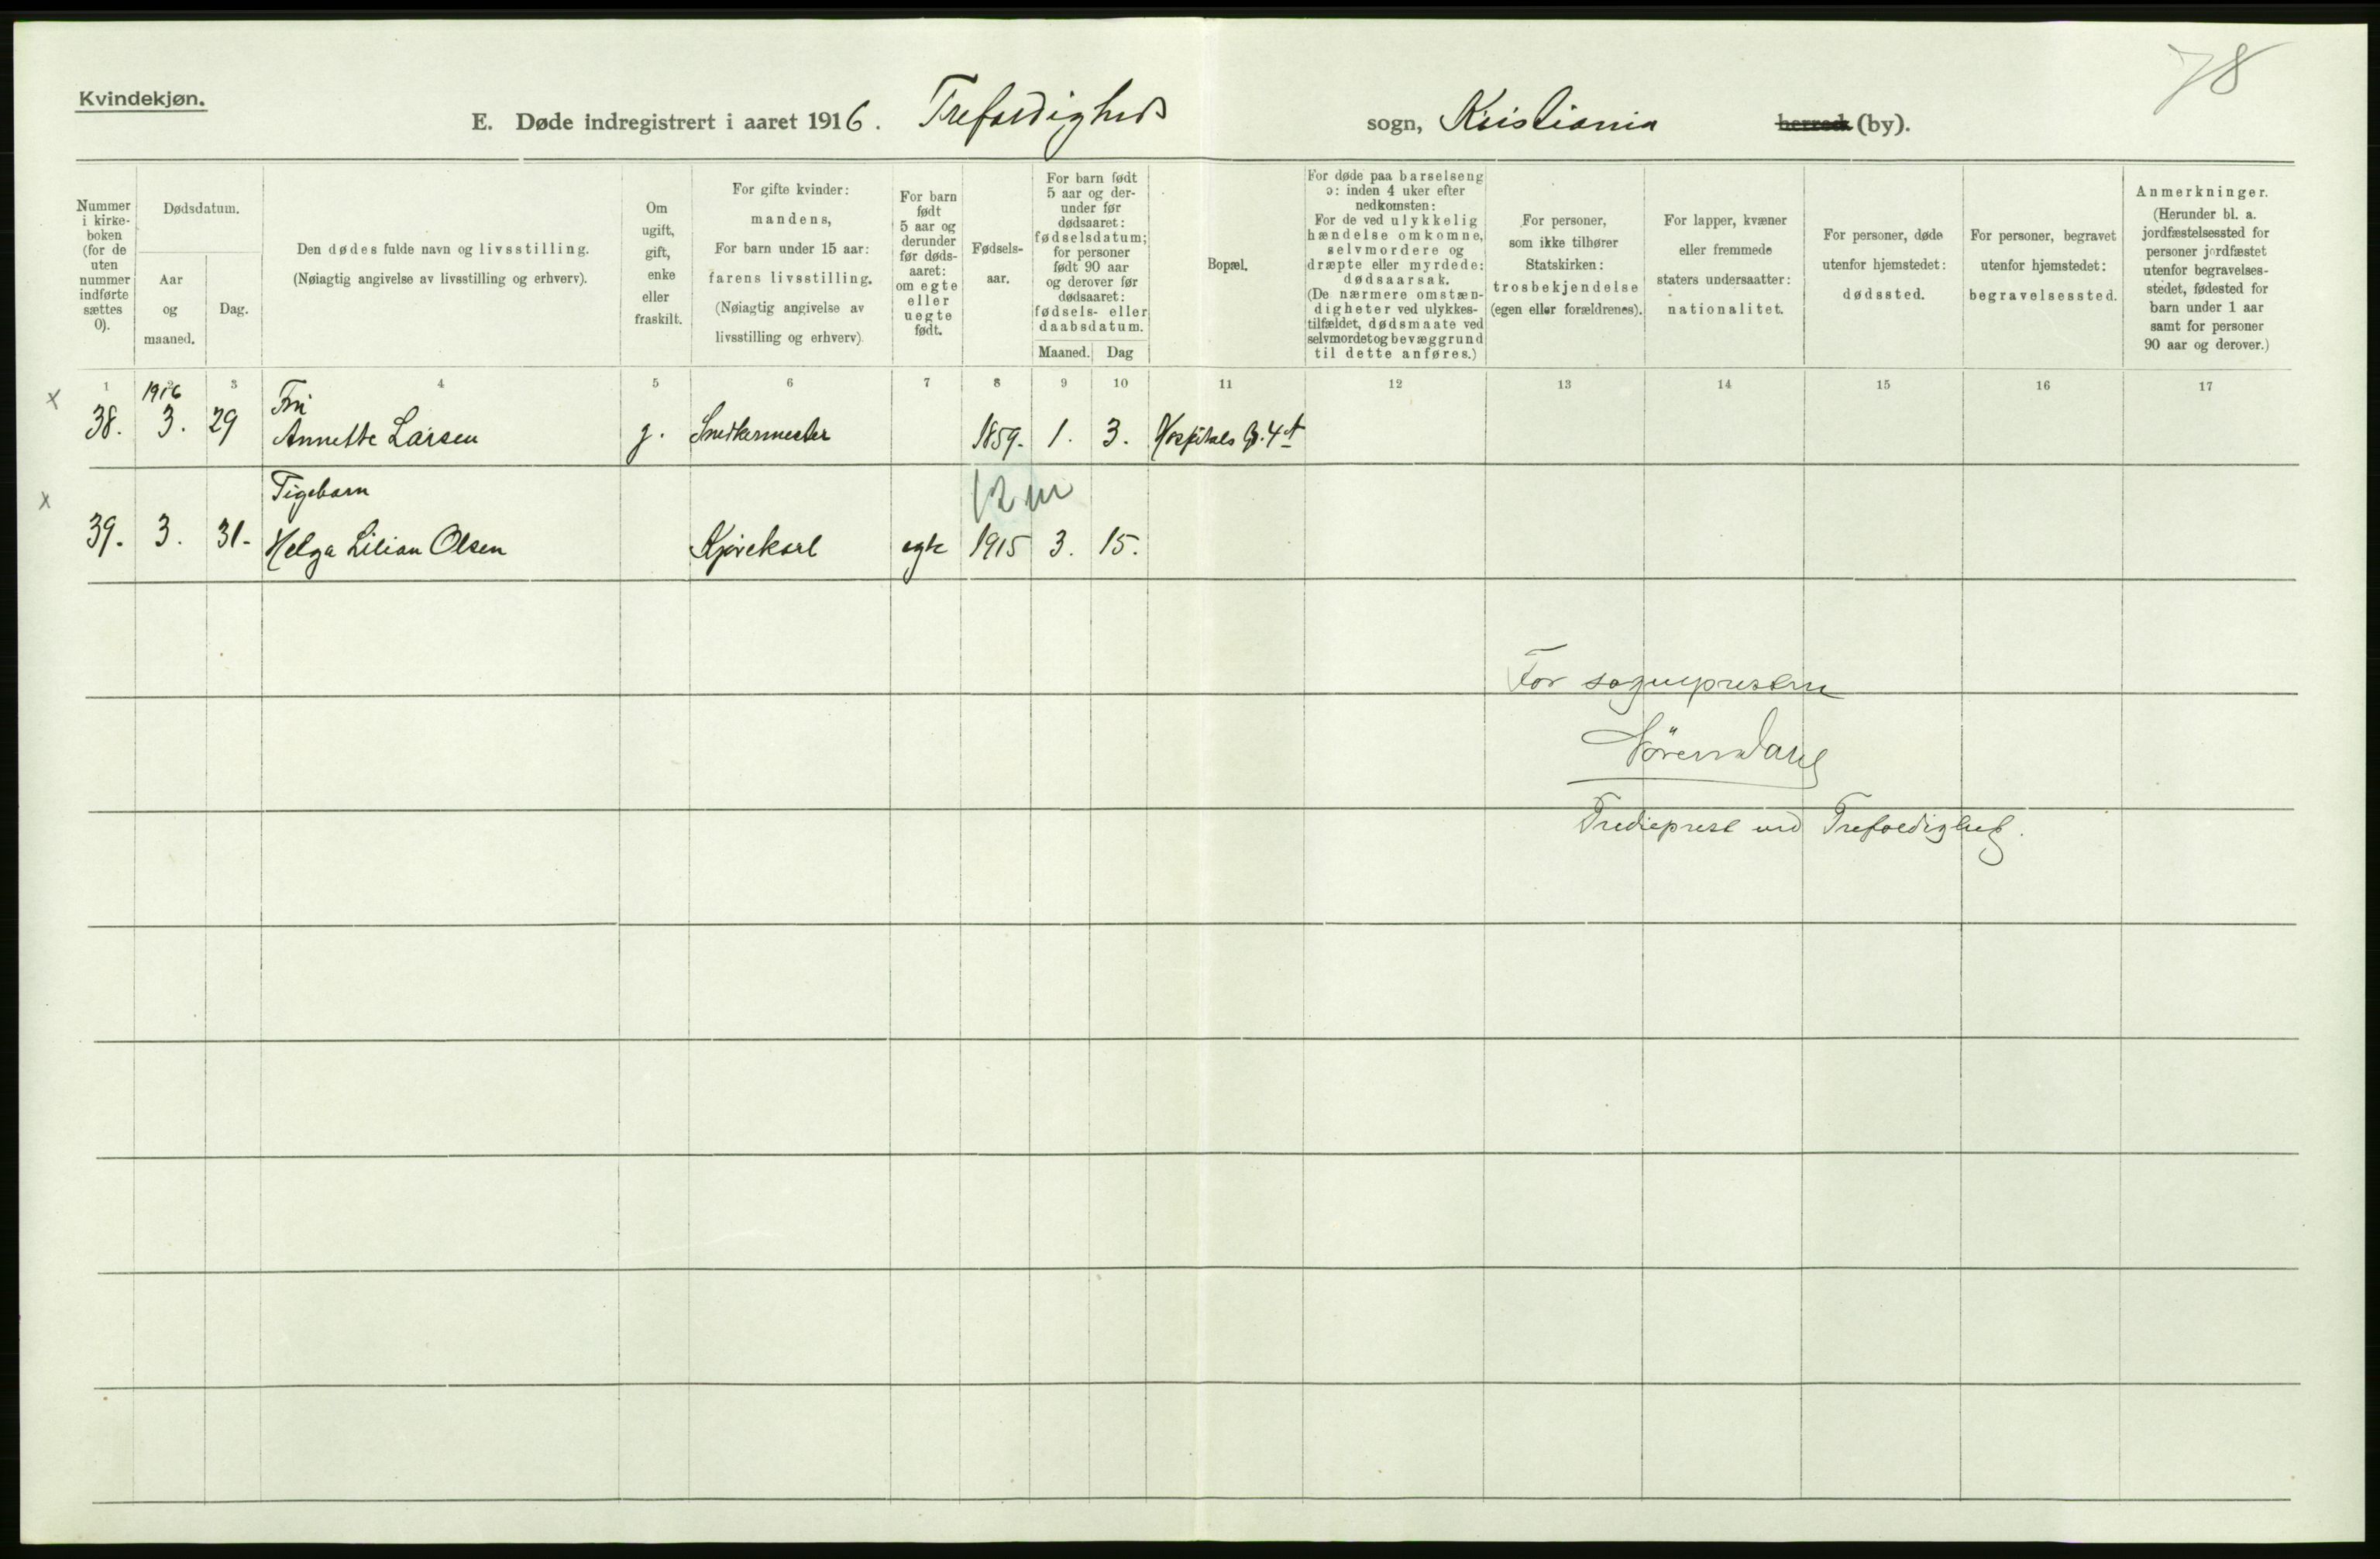 78
Kvindekjøn.
E. Døde indregistrert i aaret 1916. Trefoldigheds sogn, Kristiania herred (by).
Nummer
i kirke-
boken
(for de
uten
nummer
indførte
sættes
0).
Dødsdatum.
Aar
og
maaned.
Dag.
Den dødes fulde navn og livsstilling.
(Nøiagtig angivelse av livsstilling og erhverv).
Om
ugift,
gift,
enke
eller
fraskilt.
For gifte kvinder:
mandens,
For barn under 15 aar:
farens livsstilling.
(Nøiagtig angivelse av
livsstilling og erhverv).
For barn
født
5 aar og
derunder
før døds-
aaret:
om egte
eller
uegte
født.
Fødsels-
aar.
For barn født
5 aar og der-
under før
dødsaaret:
fødselsdatum;
for personer
født 90 aar
og derover før
dødsaaret:
fødsels- eller
daabsdatum.
Maaned.
Dag
Bopæl.
For døde paa barselseng
ɔ: inden 4 uker efter
nedkomsten:
For de ved ulykkelig
hændelse omkomne,
selvmordere og
dræpte eller myrdede:
dødsaarsak.
(De nærmere omstæn-
digheter ved ulykkes-
tilfældet, dødsmaate ved
selvmordet og bevæggrund
til dette anføres.)
For personer,
som ikke tilhører
Statskirken:
trosbekjendelse
(egen eller forældrenes).
For lapper, kvæner
eller fremmede
staters undersaatter:
nationalitet.
For personer, døde
utenfor hjemstedet:
dødssted.
For personer, begravet
utenfor hjemstedet:
begravelsessted.
Anmerkninger.
(Herunder bl. a.
jordfæstelsessted for
personer jordfæstet
utenfor begravelses-
stedet, fødested for
barn under 1 aar
samt for personer
90 aar og derover.)
1 2 3 4 5 6 7 8 9 10 11 12 13 14 15 16 17
x 1916 Fru
38. 3. 29 Annette Larsen g. Snedkermester 1859. 1. 3. Hospitals G. 4 A
x Pigebarn 12 m
39. 3. 31. Helga Lilian Olsen Kjørekarl egte 1915 3. 15.
For sognepresten
Tredieprest ved Trefoldighet.